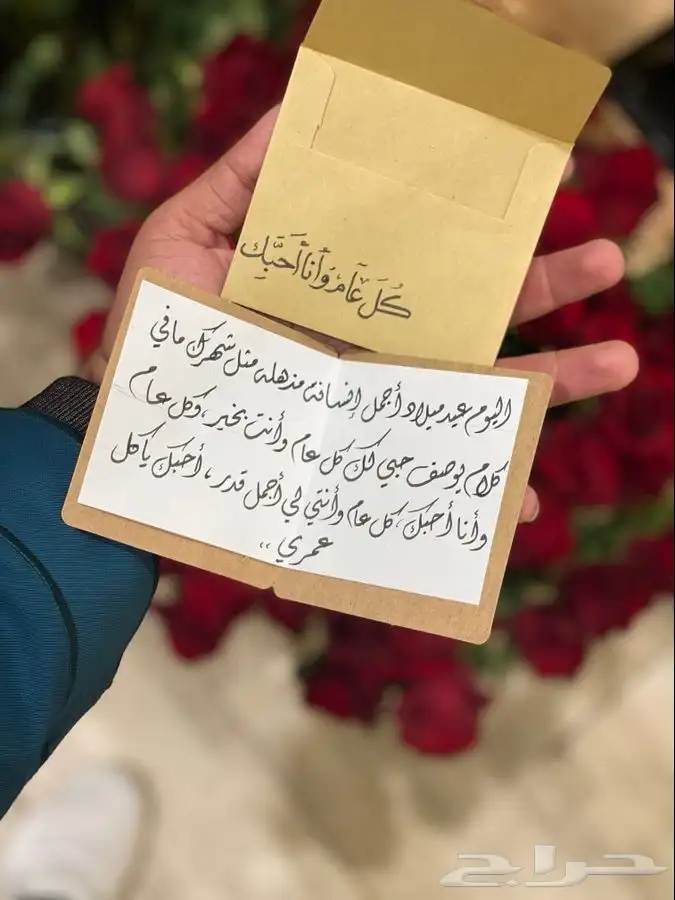 كُلَ عَام وَأنَا أَحبَّكِ
اليوم عيد ميلاد أجمل إنسانة مذهله مثل شهرك مافي
كلام يوصف حبي لك كل عام وأنت بخير، وكل عام
وأنا أحبك، كل عام وأنتي لي أجمل قدر، أحبك ياكل
عمري،،
حراج